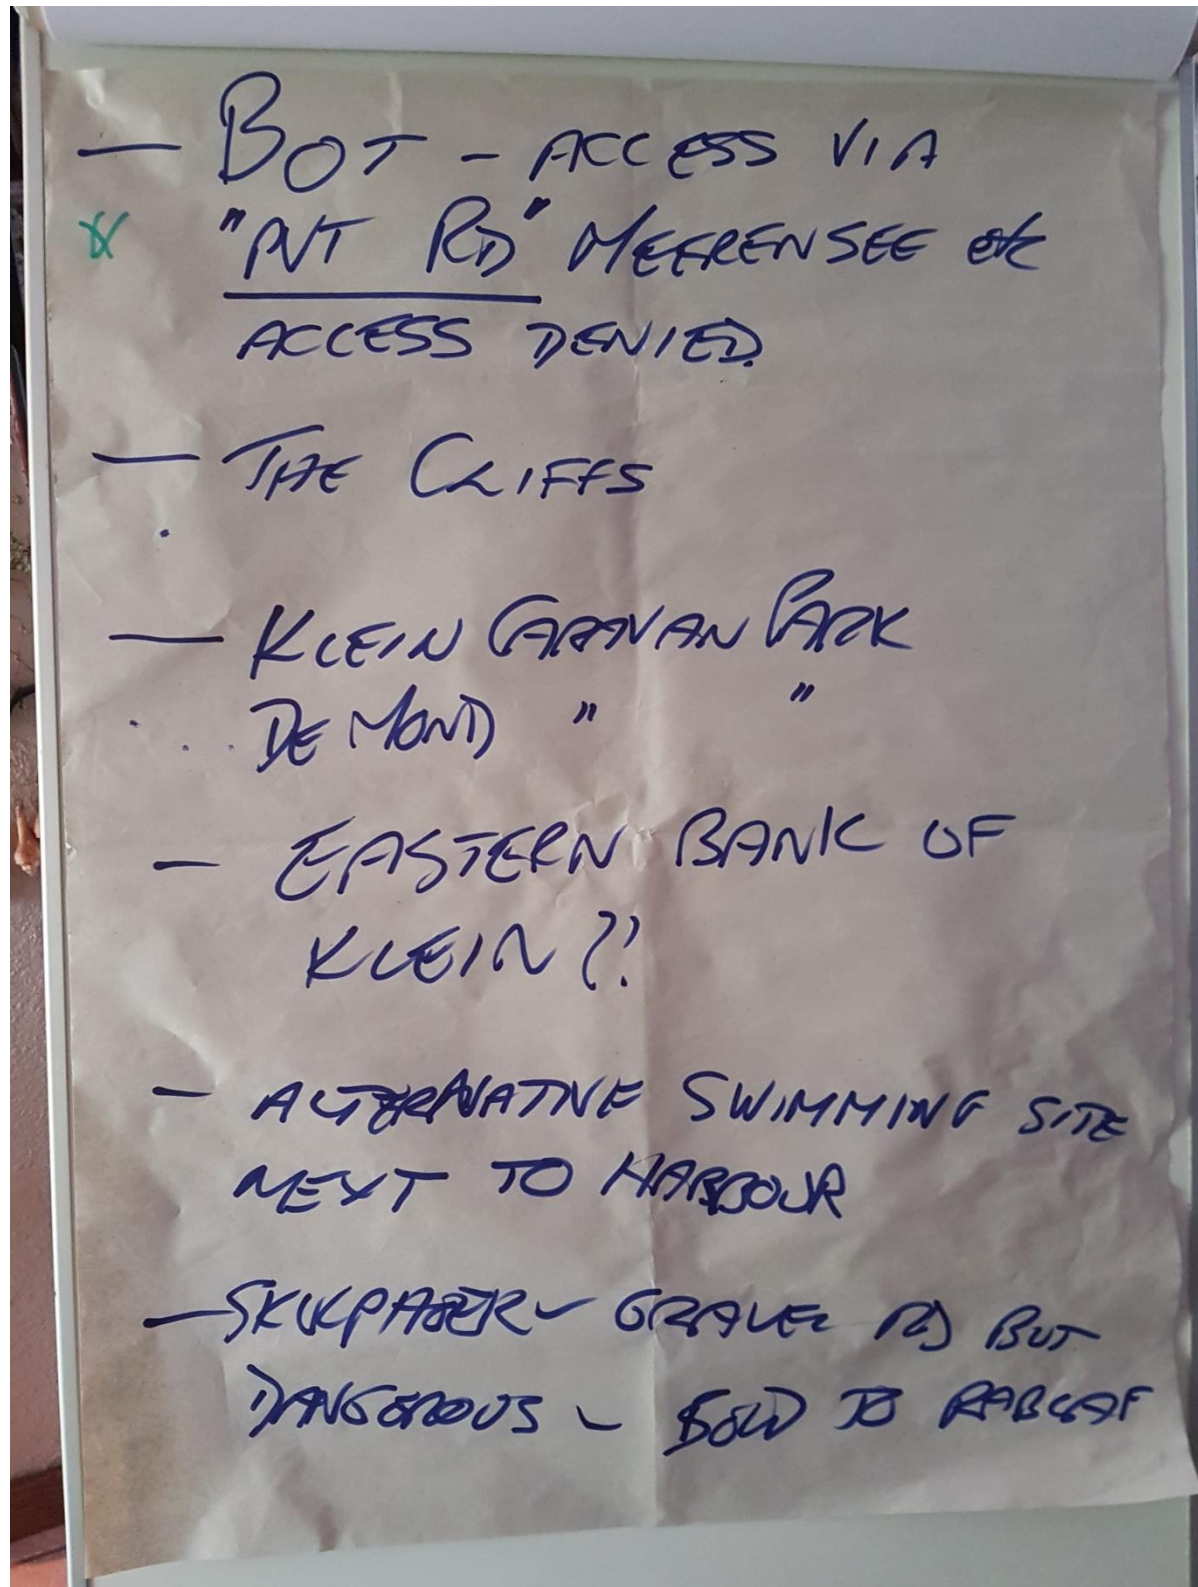 — BOT - ACCESS VIA
"PVT RD" MEERENSEE
ACCESS DENIED.
— THE CLIFFS
— KLEIN CARAVAN PARK
DE MOND " "
— EASTERN BANK OF
KLEIN?!
— ALTERNATIVE SWIMMING SITE
NEXT TO HARBOUR
— GRAVEL RD BUT
DANGEROUS - SOLD TO